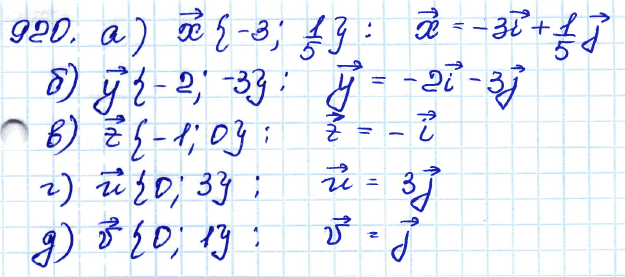 920. а) x⃗ {-3; 1/5} : x⃗ = -3i⃗ + 1/5 j⃗
б) y⃗ {-2; -3} : y⃗ = -2i⃗ - 3j⃗
в) z⃗ {-1; 0} : z⃗ = - i⃗
г) u⃗ {0; 3} : u⃗ = 3j⃗
д) v⃗ {0; 1} : v⃗ = j⃗